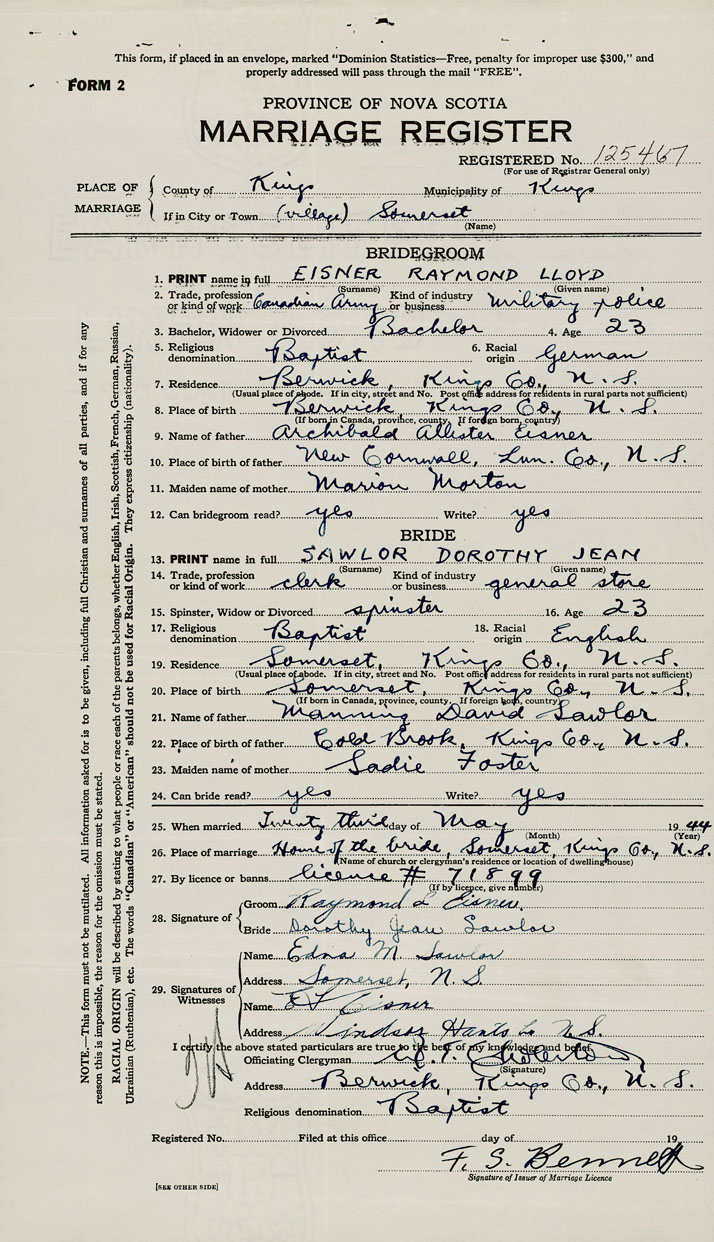 This form, if placed in an envelope, marked "Dominion Statistics—Free, penalty for improper use $300," and
properly addressed will pass through the mail "FREE".
FORM 2
PROVINCE OF NOVA SCOTIA
MARRIAGE REGISTER
REGISTERED No. 125467
(For use of Registrar General only)
PLACE OF MARRIAGE
County of Kings Municipality of Kings
If in City or Town (village) Somerset
(Name)
BRIDEGROOM
1. PRINT name in full EISNER RAYMOND LLOYD
(Surname) (Given name)
2. Trade, profession or kind of work Canadian Army Kind of industry or business Military police
3. Bachelor, Widower or Divorced Bachelor 4. Age 23
5. Religious denomination Baptist 6. Racial origin German
7. Residence Berwick, Kings Co., N. S.
(Usual place of abode. If in city, street and No. Post office address for residents in rural parts not sufficient)
8. Place of birth Berwick, Kings Co., N. S.
(If born in Canada, province, county. If foreign born, country)
9. Name of father Archibald Allister Eisner
10. Place of birth of father New Cornwall, Lun. Co., N. S.
11. Maiden name of mother Marion Morton
12. Can bridegroom read? yes Write? yes
BRIDE
13. PRINT name in full SAWLOR DOROTHY JEAN
(Surname) (Given name)
14. Trade, profession or kind of work clerk Kind of industry or business general store
15. Spinster, Widow or Divorced spinster 16. Age 23
17. Religious denomination Baptist 18. Racial origin English
19. Residence Somerset, Kings Co., N. S.
(Usual place of abode. If in city, street and No. Post office address for residents in rural parts not sufficient)
20. Place of birth Somerset, Kings Co., N. S.
(If born in Canada, province, county. If foreign born, country)
21. Name of father Manning David Sawlor
22. Place of birth of father Cold Brook, Kings Co., N. S.
23. Maiden name of mother Sadie Foster
24. Can bride read? yes Write? yes
25. When married Twenty third day of May 1944
(Month) (Year)
26. Place of marriage Home of the bride, Somerset, Kings Co., N. S.
(Name of church or clergyman's residence or location of dwelling house)
27. By licence or banns license # 71899
(If by licence, give number)
28. Signature of
Groom Raymond L Eisner
Bride Dorothy Jean Sawlor
29. Signatures of Witnesses
Name Edna M. Sawlor
Address Somerset, N. S.
Name E L Eisner
Address Windsor Hants Co N. S.
I certify the above stated particulars are true to the best of my knowledge and belief.
Officiating Clergyman
(Signature)
Address Berwick, Kings Co., N. S.
Religious denomination Baptist
Registered No. Filed at this office day of 19
F. S. Bennett
Signature of Issuer of Marriage Licence
[SEE OTHER SIDE]
NOTE.—This form must not be mutilated. All information asked for is to be given, including full Christian and surnames of all parties, and if for any
reason this is impossible, the reason for the omission must be stated.
RACIAL ORIGIN will be described by stating to what people or race each of the parents belongs, whether English, Irish, Scottish, French, German, Russian,
Ukrainian (Ruthenian), etc. The words "Canadian" or "American" should not be used for Racial Origin. They express citizenship (nationality).